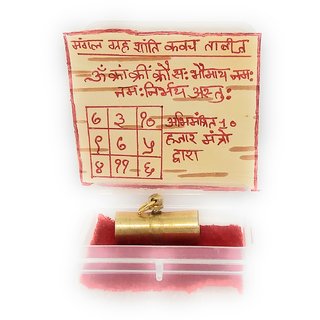 मंगल ग्रह शांति कवच ताबीज
ॐ क्रां क्रीं क्रौं सः भौमाय नमः
नमः निर्भय अस्तुः
७ ३ १०
१ ७ ५
४ ११ ६
अभिमंत्रित 10
हजार मंत्रो
द्वारा